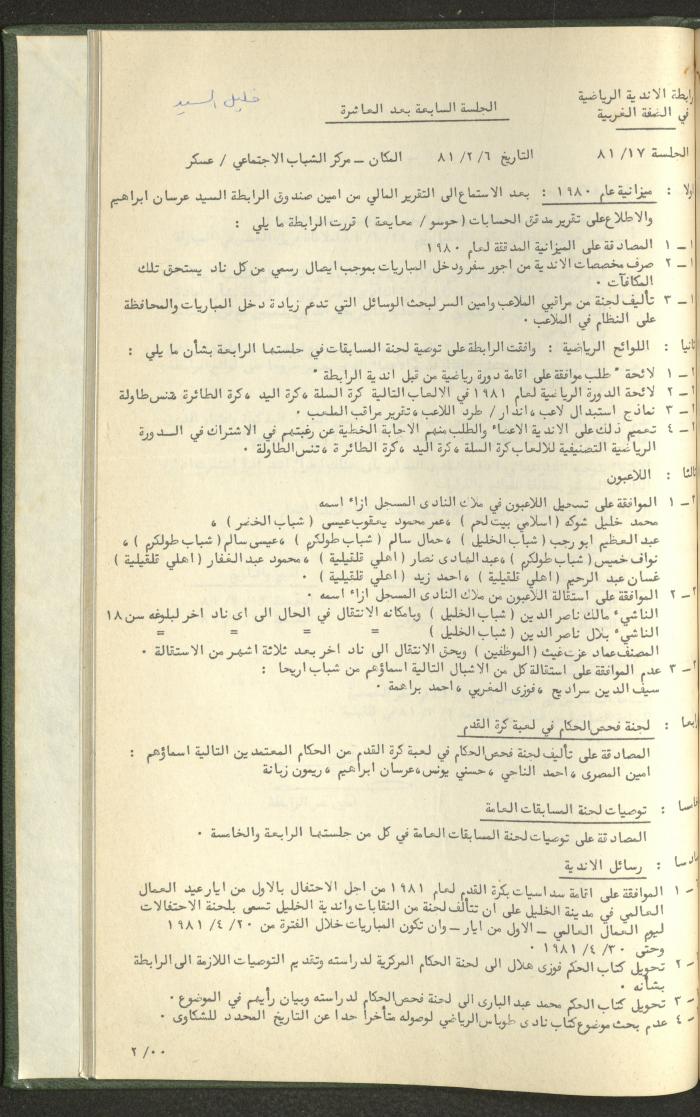 خليل السيد
رابطة الاندية الرياضية
في الضفة الغربية
الجلسة السابعة بعد العاشرة
الجلسة ١٧/ ٨١ التاريخ ٦/ ٢/ ٨١ المكان – مركز الشباب الاجتماعي / عسكر
اولا : ميزانية عام ١٩٨٠ : بعد الاستماع الى التقرير المالي من امين صندوق الرابطة السيد عرسان ابراهيم
والاطلاع على تقرير مدقق الحسابات ( حوسو / معايعة ) قررت الرابطة ما يلي :
١ – ١ المصادقة على الميزانية المدققة لعام ١٩٨٠
١ – ٢ صرف مخصصات الاندية من اجور سفر ودخل المباريات بموجب ايصال رسمي من كل ناد يستحق تلك
المكافآت ٠
١ – ٣ تأليف لجنة من مراقبي الملاعب وامين السر لبحث الوسائل التي تدعم زيادة دخل المباريات والمحافظة
على النظام في الملاعب ٠
ثانيا : اللوائح الرياضية : وافقت الرابطة على توصية لجنة المسابقات في جلستها الرابعة بشأن ما يلي :
٢ – ١ لائحة " طلب موافقة على اقامة دورة رياضية من قبل اندية الرابطة "
٢ – ٢ لائحة الدورة الرياضية لعام ١٩٨١ في الالعاب التالية كرة السلة ، كرة اليد ، كرة الطائرة ، تنس طاولة
٢ – ٣ نماذج استبدال لاعب ، انذار / طرد اللاعب ، تقرير مراقب الملعب ٠
٢ – ٤ تعميم ذلك على الاندية الاعضاء والطلب منهم الاجابة الخطية عن رغبتهم في الاشتراك في الدورة
الرياضية التصنيفية للالعاب كرة السلة ، كرة اليد ، كرة الطائرة ، تنس الطاولة ٠
ثالثا : اللاعبون
٣ – ١ الموافقة على تسجيل اللاعبون في ملاك النادى المسجل ازاء اسمه
محمد خليل شوكه ( اسلامي بيت لحم ) ، عمر محمود يعقوب عيسى ( شباب الخضر ) ،
عبد العظيم ابو رجب ( شباب الخليل ) ، جمال سالم ( شباب طولكرم ) ، عيسى سالم ( شباب طولكرم ) ،
نواف خميس ( شباب طولكرم ) ، عبد الهادى نصار ( اهلي قلقيلية ) ، محمود عبد الغفار ( اهلي قلقيلية )
غسان عبد الرحيم ( اهلي قلقيلية ) ، احمد زيد ( اهلي قلقيلية ) ٠
٣ – ٢ الموافقة على استقالة اللاعبون من ملاك النادى المسجل ازاء اسمه ٠
الناشيء مالك ناصر الدين ( شباب الخليل ) وبامكانه الانتقال في الحال الى اى ناد اخر لبلوغه سن ١٨
الناشيء بلال ناصر الدين ( شباب الخليل ) = = = =
المصنف عماد عزت غيث ( الموظفين ) ويحق الانتقال الى ناد اخر بعد ثلاثة اشهر من الاستقالة ٠
٣ – ٣ عدم الموافقة على استقالة كل من الاشبال التالية اسماؤهم من شباب اريحا :
سيف الدين سراديح ، فوزى المغربي ، احمد براهمة ٠
رابعا : لجنة فحص الحكام في لعبة كرة القدم
المصادقة على تأليف لجنة فحص الحكام في لعبة كرة القدم من الحكام المعتمدين التالية اسماؤهم :
امين المصرى ، احمد الناجي ، حسني يونس ، عرسان ابراهيم ، ريمون زبانة
خامسا : توصيات لجنة المسابقات العامة
المصادقة على توصيات لجنة المسابقات العامة في كل من جلستها الرابعة والخامسة ٠
سادسا : رسائل الاندية
٦ – ١ الموافقة على اقامة سداسيات بكرة القدم لعام ١٩٨١ من اجل الاحتفال بالاول من ايار عيد العمال
العالمي في مدينة الخليل على ان تتألف لجنة من النقابات واندية الخليل تسمى بلجنة الاحتفالات
ليوم العمال العالمي – الاول من ايار – وان تكون المباريات خلال الفترة من ٢٠/ ٤/ ١٩٨١
وحتى ٣٠/ ٤/ ١٩٨١ ٠
٦ – ٢ تحويل كتاب الحكم فوزى هلال الى لجنة الحكام المركزية لدراسته وتقديم التوصيات اللازمة الى الرابطة
بشأنه ٠
٦ – ٣ تحويل كتاب الحكم محمد عبد البارى الى لجنة فحص الحكام لدراسته وبيان رأيهم في الموضوع ٠
٦ – ٤ عدم بحث موضوع كتاب نادى طوباس الرياضي لوصوله متأخرا جدا عن التاريخ المحدد للشكاوى ٠
٢ /٠٠